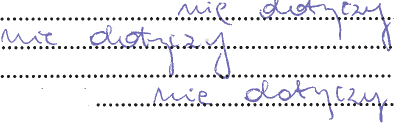 nie dotyczy
nie dotyczy
nie dotyczy